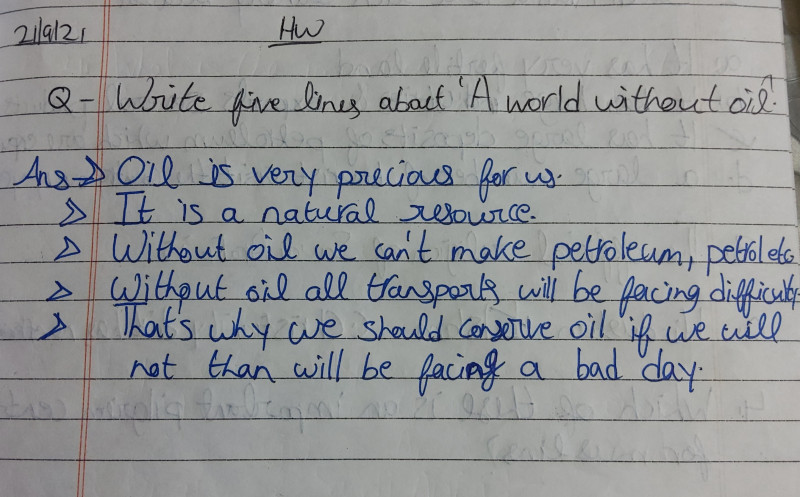 21/9/21 HW
Q - Write five lines about 'A world without oil'.
Ans → Oil is very precious for us.
> It is a natural resource.
> Without oil we can't make petroleum, petrol etc
> Without oil all transports will be facing difficulty.
> That's why we should conserve oil if we will
not than will be facing a bad day.